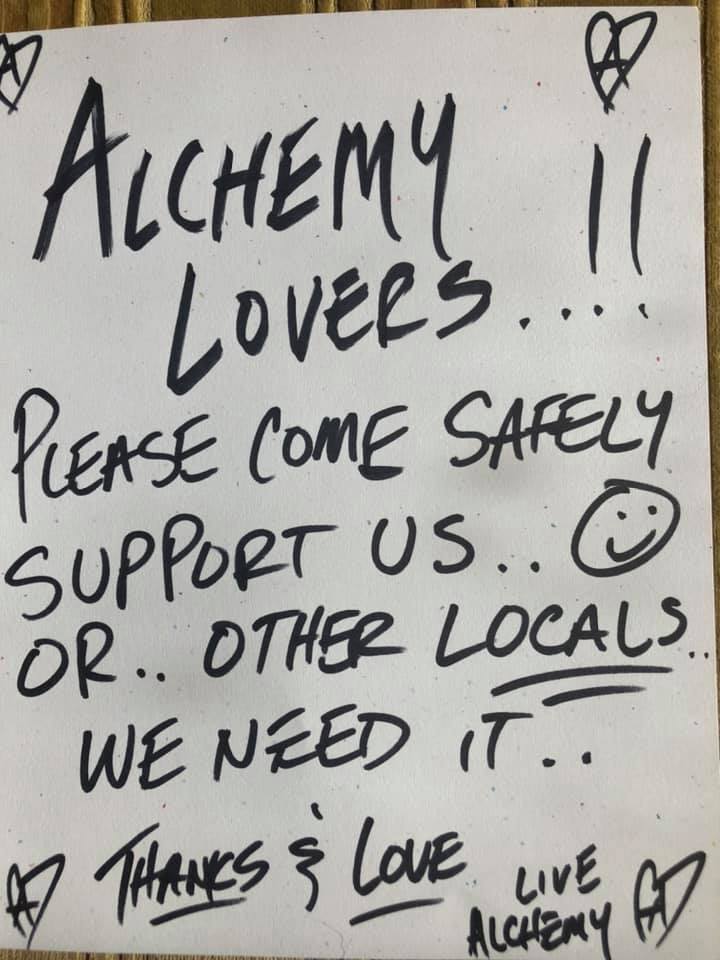 ALCHEMY !!
LOVERS....
PLEASE COME SAFELY
SUPPORT US.. ☺
OR.. OTHER LOCALS..
WE NEED IT..
THANKS & LOVE
LIVE
ALCHEMY